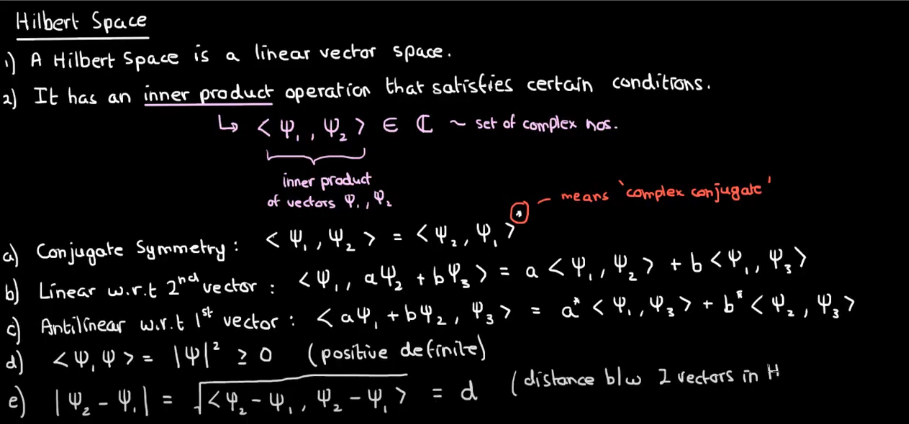 Hilbert Space
1) A Hilbert Space is a linear vector space.
2) It has an inner product operation that satisfies certain conditions.
↳ < Ψ₁ , Ψ₂ > ∈ ℂ ~ set of complex nos.
inner product
of vectors Ψ₁ , Ψ₂
* – means 'complex conjugate'
a) Conjugate Symmetry : < Ψ₁ , Ψ₂ > = < Ψ₂ , Ψ₁ >*
b) Linear w.r.t 2nd vector : < Ψ₁ , aΨ₂ + bΨ₃ > = a < Ψ₁ , Ψ₂ > + b < Ψ₁ , Ψ₃ >
c) Antilinear w.r.t 1st vector : < aΨ₁ + bΨ₂ , Ψ₃ > = a* < Ψ₁ , Ψ₃ > + b* < Ψ₂ , Ψ₃ >
d) < Ψ , Ψ > = |Ψ|² ≥ 0 (positive definite)
e) |Ψ₂ - Ψ₁| = √< Ψ₂ - Ψ₁ , Ψ₂ - Ψ₁ > = d (distance b/w 2 vectors in H